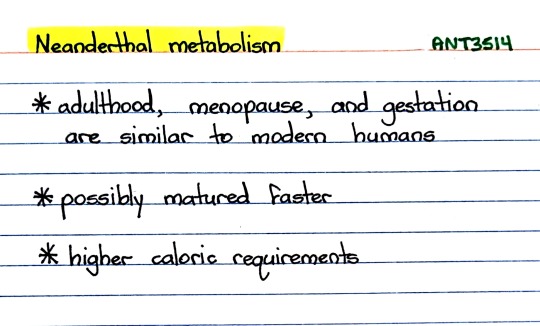 Neanderthal metabolism ANT3514
* adulthood, menopause, and gestation
are similar to modern humans
* possibly matured faster
* higher caloric requirements